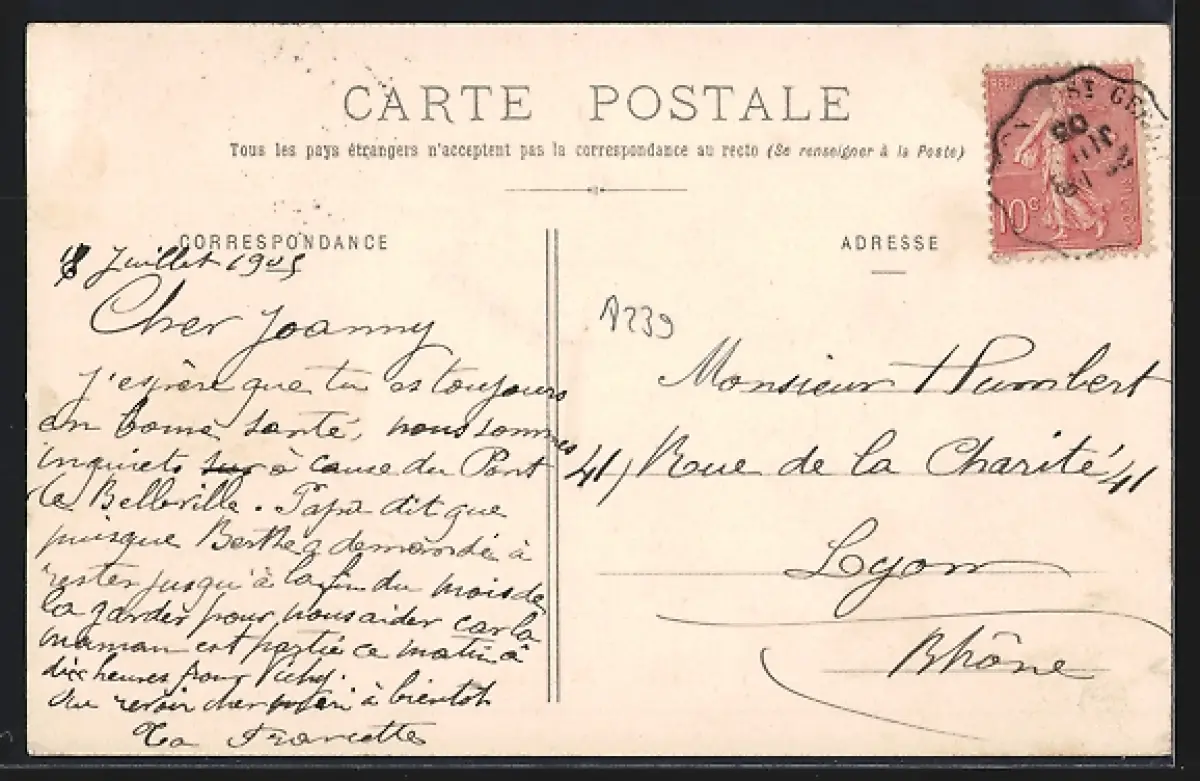 CARTE POSTALE
Tous les pays étrangers n'acceptent pas la correspondance au recto (Se renseigner à la Poste)
CORRESPONDANCE
ADRESSE
10c
ST GER
05
Juillet 1905
Cher Joanny
J'espère que tu es toujours
en bonne santé, nous sommes
inquiets à cause du Pont
de Belleville. Papa dit que
puisque Berthe a demandé à
rester jusqu'à la fin du mois de
la garder pour nous aider car la
maman est partie ce matin à
dix heures pour Vichy.
au revoir cher à bientôt
Ta Francette
A239
Monsieur Humbert
41, Rue de la Charité, 41
Lyon
Rhône